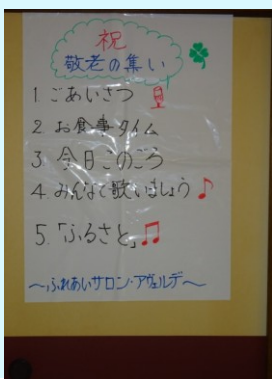 祝
敬老の集い
1. ごあいさつ
2. お食事タイム
3. 今日このごろ
4. みんなで歌いましょう♪
5.「ふるさと」♫
～ふれあいサロン・アヴェルデ～